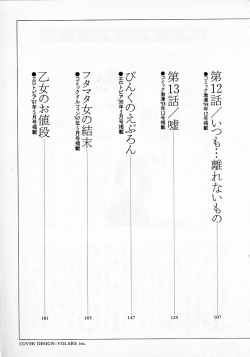 第12話／いつも…離れないもの
●コミック激漫'98年12号掲載
107
第13話／嘘
●コミック激漫'98年13号掲載
123
ぴんくのえぷろん
●エロトピア'98年1月号掲載
147
フタマタ女の結末
●コミックオルファン'97年5月号掲載
165
乙女のお値段
●エロトピア'97年5月号掲載
181
COVER DESIGN: VOLARE inc.